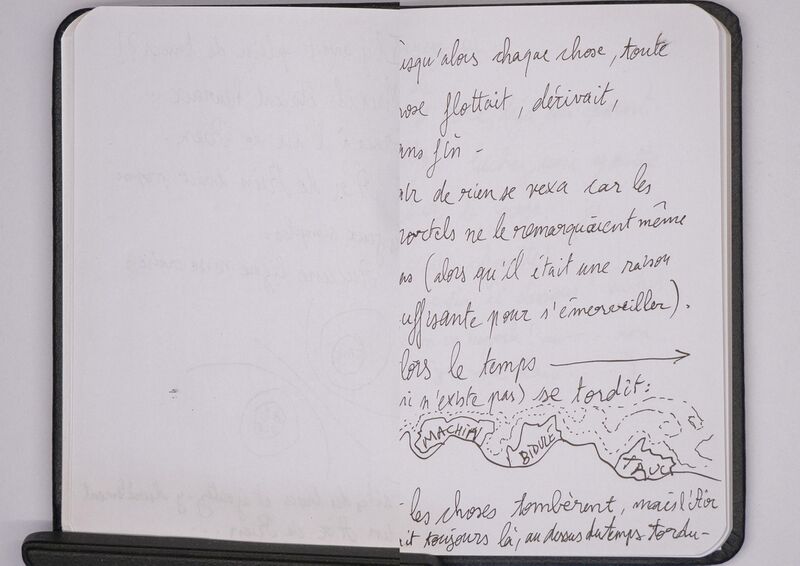 usqu'alors chaque chose, toute
hose flottait, dérivait,
ans fin -
air de rien se vexa car les
mortels ne le remarquaient même
as (alors qu'il était une raison
uffisante pour s'émerveiller).
lors le temps
ui n'existe pas) se tordit:
MACHIN
BIDULE
TRUC
les choses tombèrent, mais l'Air
ait toujours là, au dessus du temps tordu-